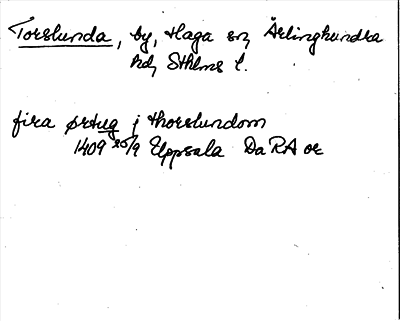 Torslunda, by, Haga sn, Ärlinghundra
hd, Sthlms l.
fira ørtug j thorslundom
1409 25/9 Uppsala DaRA or